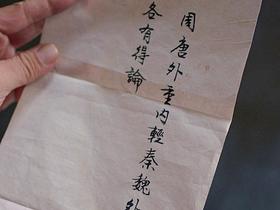 周唐外重內輕秦魏外
各有得論